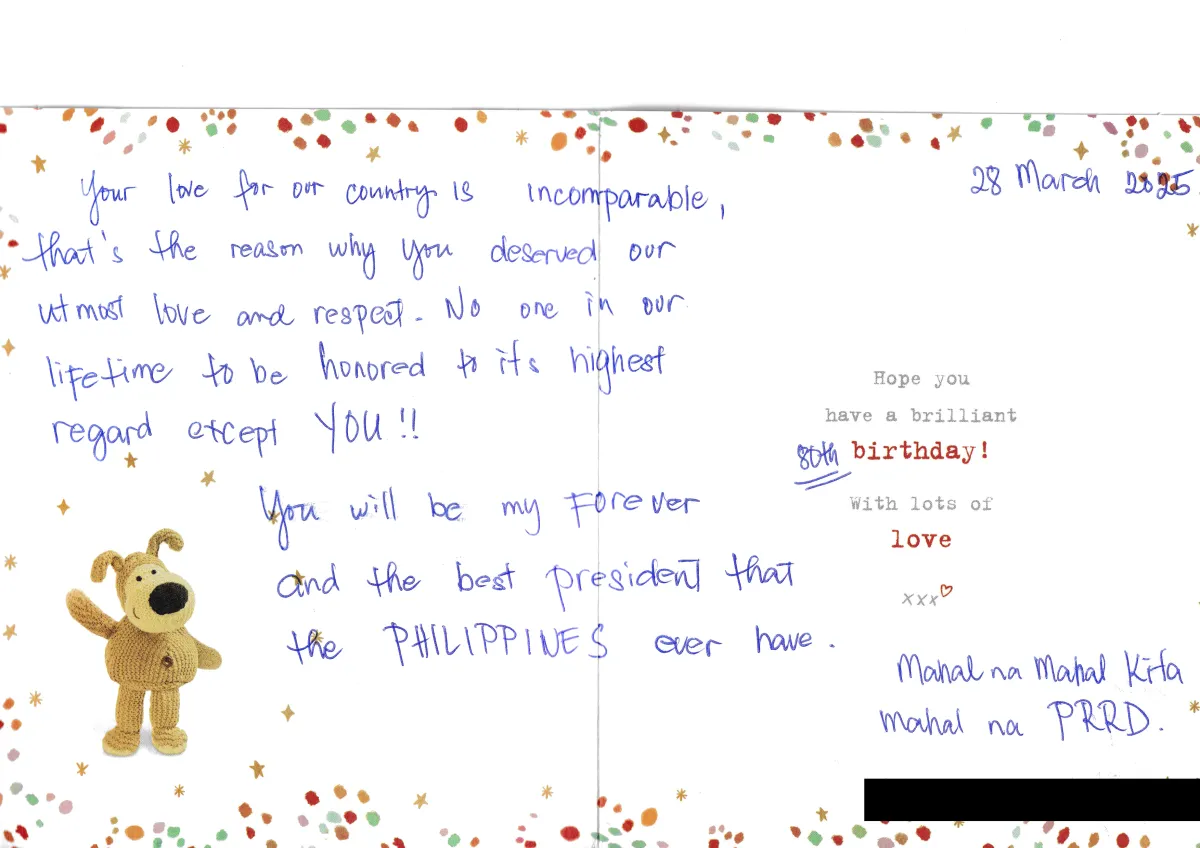 28 March 2025
Your love for our country is incomparable,
that's the reason why you deserved our
utmost love and respect. No one in our
lifetime to be honored to its highest
regard except YOU!!
You will be my Forever
and the best president that
the PHILIPPINES ever have.
Hope you
have a brilliant
80th birthday!
With lots of
love
xxx
Mahal na Mahal Kita
mahal na PRRD.